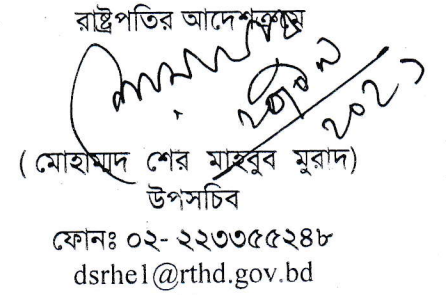 রাষ্ট্রপতির আদেশক্রমে
( মোহাম্মদ শের মাহবুব মুরাদ)
উপসচিব
ফোনঃ ০২- ২২৩৩৫৫২৪৮
dsrhe1@rthd.gov.bd